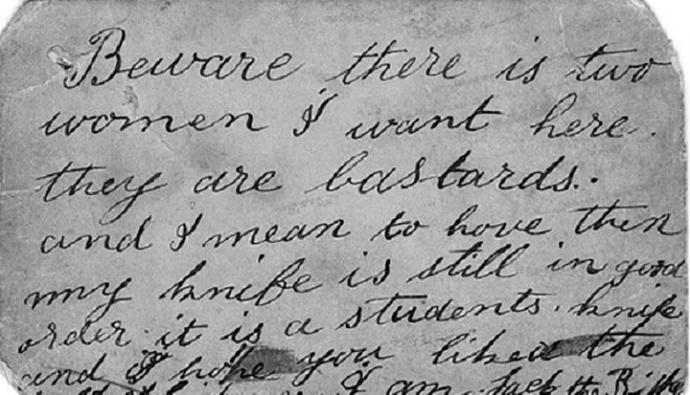 Beware there is two
women I want here.
they are bastards.
and I mean to have them
my knife is still in good
order. it is a students. knife
and I hope you liked the
I am Jack the